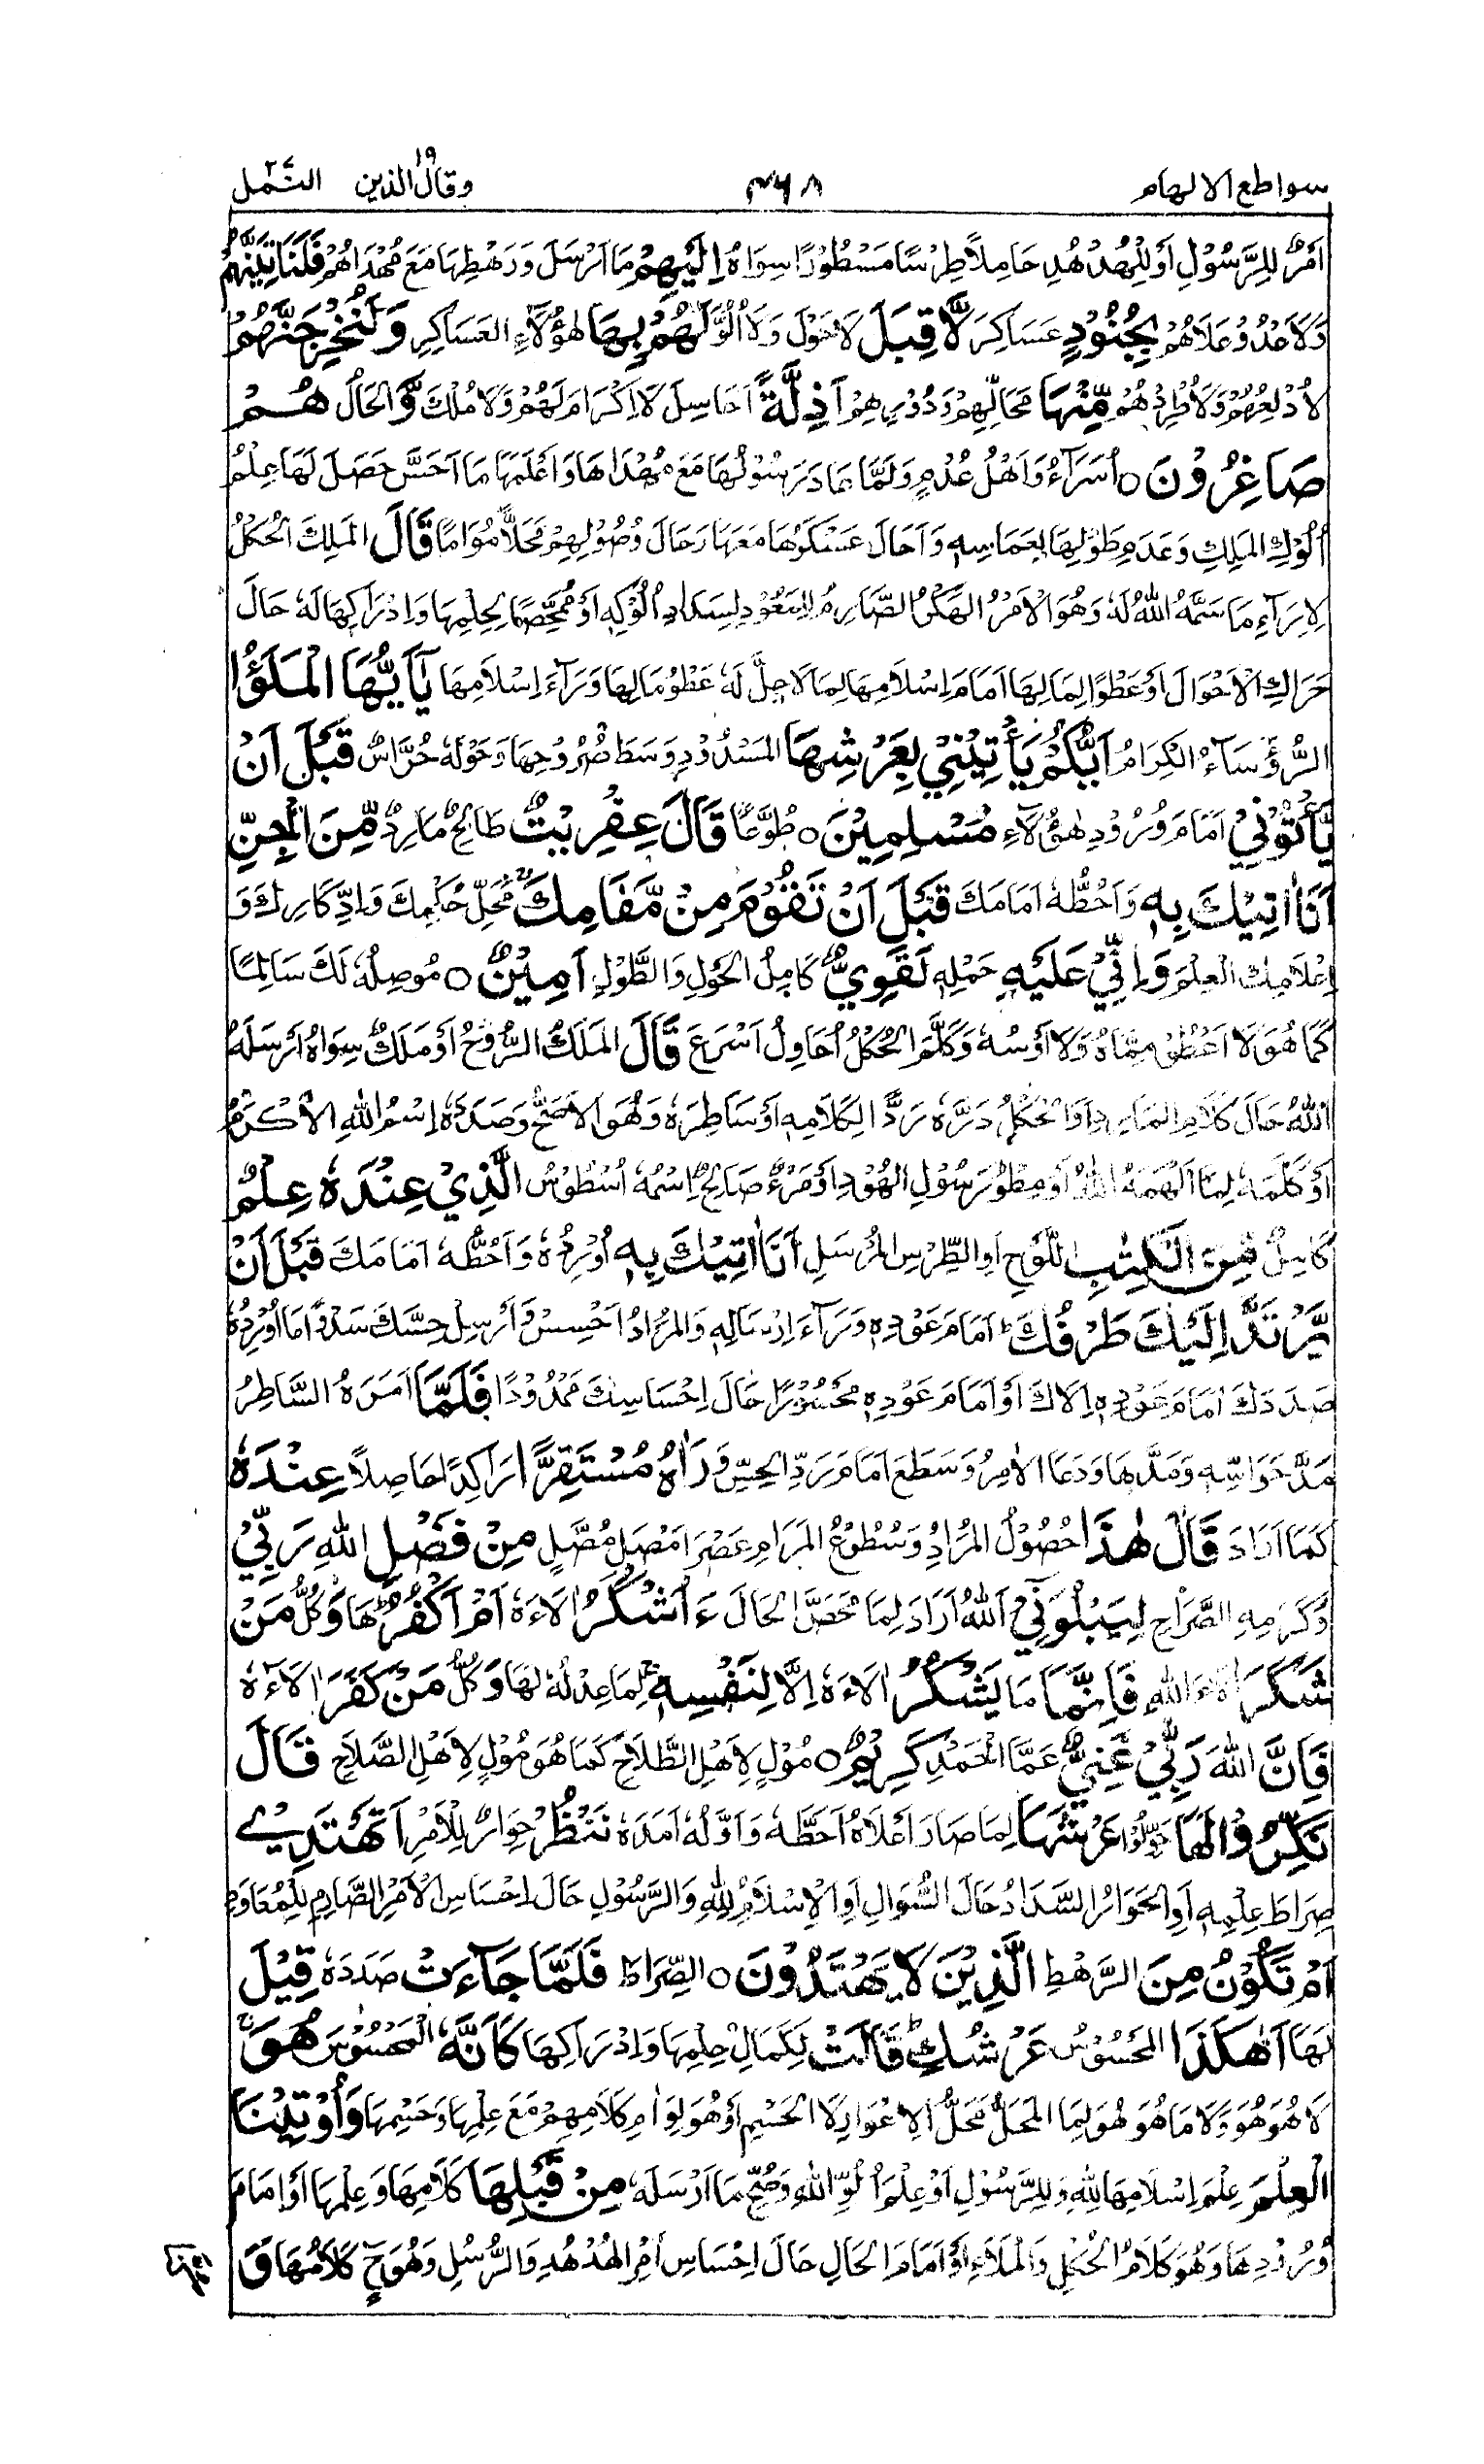 سواطع الالهام ٤٦٧ وقال الذين ١٩ النمل ٢٧
اَمْرٌ لِلرَّسُوْلِ اَوْ لِلْهُدْهُدِ حَامِلًا طِرْسًا مَسْطُوْرًا سِوَاهُ اِلَيْهِمْ مَا اَرْسَلَ وَرَهْطِهَا مَعَ مُهْدَاهُمْ فَلَنَاْتِيَنَّهُمْ
وَلَاَعْدُوْ عَلَاهُمْ بِجُنُوْدٍ عَسَاكِرَ لَّا قِبَلَ لَا حَوْلَ وَلَا لَهُمْ بِهَا هٰؤُلَاءِ الْعَسَاكِرِ وَلَنُخْرِجَنَّهُمْ
لَاَطْرُدُهُمْ مِّنْهَا مَحَالِّهِمْ وَدُوْرِهِمْ اَذِلَّةً لَا اِكْرَامَ لَهُمْ وَلَا مُلْكَ وَّالْحَالُ هُمْ
صَاغِرُوْنَ ○ اُسَرَاءُ وَاَهْلُ عُدْمٍ وَلَمَّا عَادَ رَسُوْلُهَا مَعَ مُهْدَاهَا وَاَعْلَمَهَا مَا اَحَسَّ حَصَلَ لَهَا عِلْمُ
اُلُوْكِ الْمَلِكِ وَعَدَمِ طَوْلِهَا لِعَمَاسِهِ وَاَحَالَ عَسْكَرُهَا مَعَهَا رَحَالَ وُصُوْلِهِمْ مَحَلًّا مُوَامًا قَالَ الْمَلِكُ الْحُكْلُ
لِاِرَاءِ مَا سَمَّهُ اللهُ لَهُ وَهُوَ الْاَمْرُ الصَّارِمُ لِسَدَادِ اُلُوْكِهِ اَوْ مُمَحِّصًا لِحِلْمِهَا وَاِدْرَاكِهَا لَهُ حَالَ
حَرَاكِ الْاَحْوَالِ اَوْ عَطْوًا لِمَالِهَا اَمَامَ اِسْلَامِهَا لِمَا لَا حِلَّ لَهُ عَطْوُ مَالِهَا وَرَاءَ اِسْلَامِهَا يٰاَيُّهَا الْمَلَؤُا
الرُّؤَسَاءُ الْكِرَامُ اَيُّكُمْ يَاْتِيْنِيْ بِعَرْشِهَا الْمَسْدُوْدِ وَسَطَ صُرُوْحِهَا وَحَوْلَهُ حُرَّاسٌ قَبْلَ اَنْ
يَّاْتُوْنِيْ اَمَامَ وُرُوْدِ هٰؤُلَاءِ مُسْلِمِيْنَ ○ طُوَّعًا قَالَ عِفْرِيْتٌ طَالِحٌ مَارِدٌ مِّنَ الْجِنِّ
اَنَا اٰتِيْكَ بِهٖ وَاَحُطُّهُ اَمَامَكَ قَبْلَ اَنْ تَقُوْمَ مِنْ مَّقَامِكَ مَحَلِّ حُكْمِكَ وَادِّكَارِكَ وَ
اِعْلَامِكَ الْعِلْمَ وَاِنِّيْ عَلَيْهِ حَمْلِهِ لَقَوِيٌّ كَامِلُ الْحَوْلِ وَالطَّوْلِ اَمِيْنٌ ○ مُوْصِلُهُ لَكَ سَالِمًا
كَمَا هُوَ لَا اَعْطُوْ مِمَّاهُ وَلَا اَوُسُهُ وَكَلَّمَ الْحُكْلُ اُحَاوِلُ اَسْرَعَ قَالَ الْمَلَكُ الرُّوْحُ اَوْ مَلَكٌ سِوَاهُ اَرْسَلَهُ
اللهُ حَالَ كَلَامِ الْمَارِدِ اَوِ الْحُكْلُ رَدًّا لِكَلَامِهِ اَوْ سَاطِرَهُ وَهُوَ الْاَصَحُّ وَصَدَرَهُ اِسْمُ اللهِ الْاَكْرَمُ
اَوْ كَلَّمَهُ لِمَا اَلْهَمَهُ اللهُ اَوْ رَسُوْلِ الْهُوْدِ اَوْ مَرْءٌ صَالِحٌ اِسْمُهُ اُسْطُوْسُ الَّذِيْ عِنْدَهٗ عِلْمٌ
كَامِلٌ مِّنَ الْكِتٰبِ اللَّوْحِ اَوِ الطِّرْسِ الْمُرْسَلِ اَنَا اٰتِيْكَ بِهٖ اُوْرِدُهُ وَاَحُطُّهُ اَمَامَكَ قَبْلَ اَنْ
يَّرْتَدَّ اِلَيْكَ طَرْفُكَ ط اَمَامَ عَوْدِهِ وَرَاءَ اِرْسَالِهِ وَالْمُرَادُ اَرْسِلْ حِسَّكَ اَمَا اُوْرِدُهُ
صَدَدَكَ اَمَامَ عَوْدِهِ اِلَاكَ اَوْ اَمَامَ عَوْدِهِ مَحْسُوْرًا حَالَ اِحْسَاسِكَ مَمْدُوْدًا فَلَمَّا اَمَرَهُ السَّاطِرُ
مَدَّ حَوَاسِّهِ وَمَدَّهَا وَدَعَا الْاٰمِرُ وَسَطَعَ اَمَامَ رَدِّ الْحِسِّ وَرَاٰهُ مُسْتَقِرًّا رَاكِدًا حَاصِلًا عِنْدَهٗ
كَمَا اَرَادَ قَالَ هٰذَا حُصُوْلُ الْمُرَادِ وَسُطُوْعُ الْمَرَامِ عَصْرًا مِنْ فَضْلِ اللهِ رَبِّيْ
وَكَرَمِهِ الصُّرَاحِ لِيَبْلُوَنِيْ اللهُ اَرَادَ لِمَا مَحَصَ الْحَالَ ءَاَشْكُرُ اٰلَاءَهُ اَمْ اَكْفُرُ هَا وَكُلُّ مَنْ
شَكَرَ اٰلَاءَ اللهِ فَاِنَّمَا مَا يَشْكُرُ اٰلَاءَهُ اِلَّا لِنَفْسِهٖ لِمَا عِدْلُهُ لَهَا وَكُلُّ مَنْ كَفَرَ اٰلَاءَهُ
فَاِنَّ اللهَ رَبِّيْ غَنِيٌّ عَمَّا الْحَمْدِ كَرِيْمٌ ○ مُوْلٍ لِاَهْلِ الطَّلَاحِ كَمَا هُوَ مُوْلٍ لِاَهْلِ الصَّلَاحِ قَالَ
نَكِّرُوْا لَهَا حَوِّلُوْا عَرْشَهَا لِمَا صَارَ اَعْلَاهُ اَحَطَّهُ وَاَوَّلُهُ اَمَدَهُ نَنْظُرْ حِوَارٌ لِلْاَمْرِ اَتَهْتَدِيْ
صِرَاطَ عِلْمِهِ اَوِ الْحِوَارُ السَّدَادُ حَالَ السُّؤَالِ اَوِ الْاِسْلَامُ لِلّٰهِ وَالرَّسُوْلِ حَالَ اِحْسَاسِ الْاَمْرِ الصَّارِمِ
اَمْ تَكُوْنُ مِنَ الرَّهْطِ الَّذِيْنَ لَا يَهْتَدُوْنَ ○ الصِّرَاطَ فَلَمَّا جَاءَتْ صَدَدَهُ قِيْلَ
لَهَا اَهٰكَذَا الْمَحْسُوْسُ عَرْشُكِ ط قَالَتْ لِكَمَالِ حِلْمِهَا وَاِدْرَاكِهَا كَاَنَّهٗ الْمَحْسُوْسَ هُوَ
لَا هُوَ هُوَ وَلَا مَا هُوَ هُوَ لِمَا الْمَحَلُّ مَحَلُّ الْحَسْمِ اَوْ هُوَ كَلَامِهِمْ مَعَ عِلْمِهَا وَحَسْمِهَا وَاُوْتِيْنَا
الْعِلْمَ عِلْمَ اِسْلَامِهَا لِلّٰهِ وَلِلرَّسُوْلِ اَوْ عِلْمَ اللهِ وَصَحَّ مَا اَرْسَلَهُ مِنْ قَبْلِهَا كَلَامِهَا وَعِلْمِهَا اَوْ اَمَامَ
وُرُوْدِهَا وَهُوَ كَلَامُ الْحُكْلِ وَالْمَلَاءِ اَوْ اَمَامَ الْحَالِ حَالَ اِحْسَاسِ اَمْرِ الْهُدْهُدِ وَالرُّسُلِ وَهُوَ كَلَامُهَا وَ